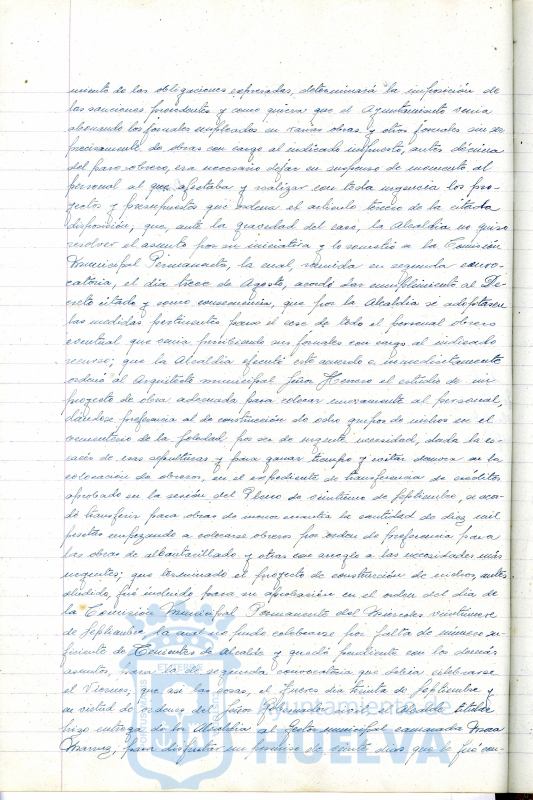 miento de las obligaciones expresadas, determinará la imposición de
las sanciones procedentes y como quiera que el Ayuntamiento venía
abonando los jornales empleados en varias obras y otros jornales sin ser
precisamente de obras con cargo al indicado impuesto, antes décima
del paro obrero, era necesario dejar en suspenso de momento al
personal al que afectaba y realizar con toda urgencia los pro-
yectos y presupuestos que ordena el artículo tercero de la citada
disposición; que, ante la gravedad del caso, la Alcaldía no quiso
resolver el asunto por su iniciativa y lo sometió a la Comisión
Municipal Permanente, la cual, reunida en segunda convo-
catoria, el día trece de Agosto, acordó dar cumplimiento al De-
creto citado y como consecuencia, que por la Alcaldía se adoptasen
las medidas pertinentes para el cese de todo el personal obrero
eventual que venía percibiendo sus jornales con cargo al indicado
recurso; que la Alcaldía ejecutó este acuerdo e inmediatamente
ordenó al Arquitecto municipal Señor Herrero el estudio de un
proyecto de obra adecuada para colocar nuevamente al personal,
dándose preferencia al de construcción de ocho grupos de nichos en el
cementerio de la Soledad por ser de urgente necesidad, dada la es-
casés de esas sepulturas y para ganar tiempo y evitar demora en la
colocación de obreros, en el expediente de transferencia de créditos
aprobado en la sesión del Pleno de veintiuno de Septiembre, se acor-
dó transferir para obras de menor cuantía la cantidad de diez mil
pesetas empezando a colocarse obreros por orden de preferencia para
las obras de alcantarillado y otras con arreglo a las necesidades más
urgentes; que terminado el proyecto de construcción de nichos, antes
aludido, fué incluido para su aprobación en el orden del día de
la Comisión Municipal Permanente del Miércoles veintinueve
de Septiembre, la cual no pudo celebrarse por falta de número su-
ficiente de Tenientes de Alcalde y quedó pendiente con los demás
asuntos, para la de segunda convocatoria que debía celebrarse
el Viernes; que así las cosas, el Jueves día treinta de Septiembre y
en virtud de órdenes del Señor Gobernador civil el Alcalde titular
hizo entrega de la Alcaldía al Gestor municipal camarada
para disfrutar un permiso de veinte días que le fué con-
Ayuntamiento de
HUELVA